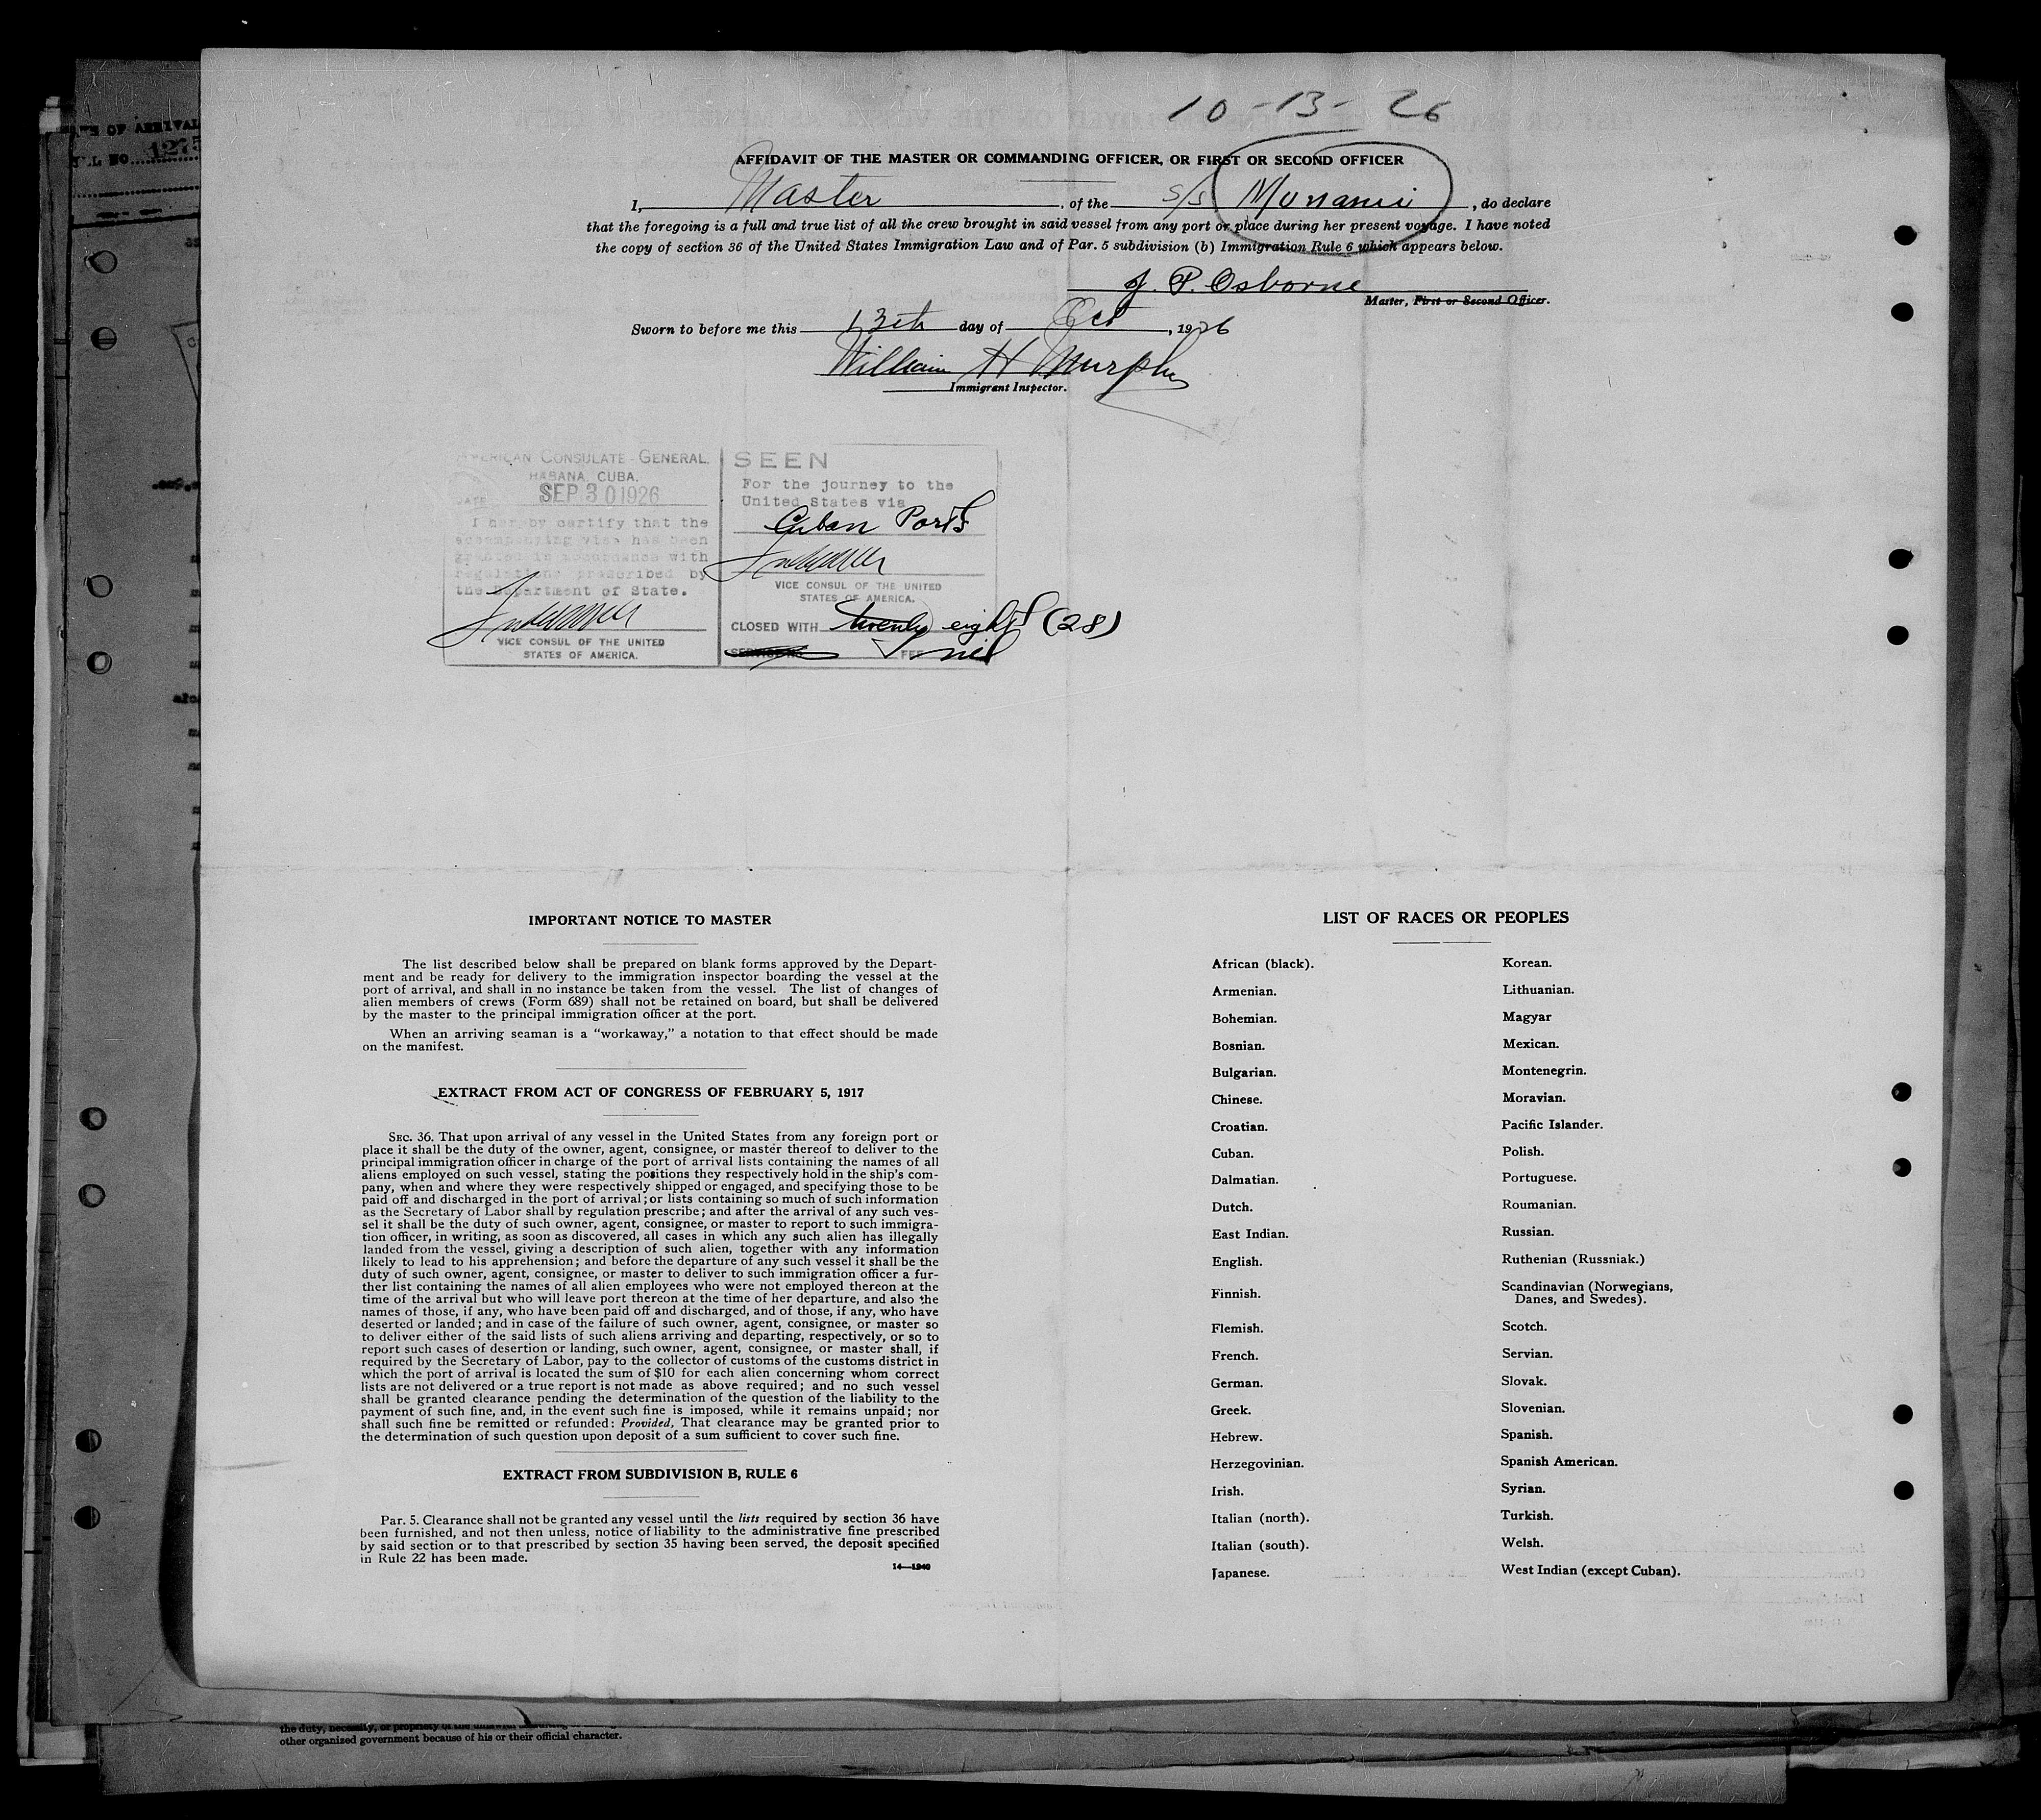 10-13-26
AFFIDAVIT OF THE MASTER OR COMMANDING OFFICER, OR FIRST OR SECOND OFFICER
I, Master, of the S/S Munamie, do declare
that the foregoing is a full and true list of all the crew brought in said vessel from any port or place during her present voyage. I have noted
the copy of section 36 of the United States Immigration Law and of Par. 5 subdivision (b) Immigration Rule 6 which appears below.
J. P. Osborne
Master, First or Second Officer.
Sworn to before me this 13th day of Oct, 1926
William H Murphy
Immigrant Inspector.
AMERICAN CONSULATE-GENERAL,
HABANA, CUBA.
DATE SEP 30 1926
I hereby certify that the
accompanying visa has been
granted in accordance with
regulations prescribed by
the Department of State.
VICE CONSUL OF THE UNITED
STATES OF AMERICA.
SEEN
For the journey to the
United States via
Cuban Ports
VICE CONSUL OF THE UNITED
STATES OF AMERICA.
CLOSED WITH twenty eight (28)
SERVICE NO. FEE nil
IMPORTANT NOTICE TO MASTER
The list described below shall be prepared on blank forms approved by the Depart-
ment and be ready for delivery to the immigration inspector boarding the vessel at the
port of arrival, and shall in no instance be taken from the vessel. The list of changes of
alien members of crews (Form 689) shall not be retained on board, but shall be delivered
by the master to the principal immigration officer at the port.
When an arriving seaman is a "workaway," a notation to that effect should be made
on the manifest.
EXTRACT FROM ACT OF CONGRESS OF FEBRUARY 5, 1917
SEC. 36. That upon arrival of any vessel in the United States from any foreign port or
place it shall be the duty of the owner, agent, consignee, or master thereof to deliver to the
principal immigration officer in charge of the port of arrival lists containing the names of all
aliens employed on such vessel, stating the positions they respectively hold in the ship's com-
pany, when and where they were respectively shipped or engaged, and specifying those to be
paid off and discharged in the port of arrival; or lists containing so much of such information
as the Secretary of Labor shall by regulation prescribe; and after the arrival of any such ves-
sel it shall be the duty of such owner, agent, consignee, or master to report to such immigra-
tion officer, in writing, as soon as discovered, all cases in which any such alien has illegally
landed from the vessel, giving a description of such alien, together with any information
likely to lead to his apprehension; and before the departure of any such vessel it shall be the
duty of such owner, agent, consignee, or master to deliver to such immigration officer a fur-
ther list containing the names of all alien employees who were not employed thereon at the
time of the arrival but who will leave port thereon at the time of her departure, and also the
names of those, if any, who have been paid off and discharged, and of those, if any, who have
deserted or landed; and in case of the failure of such owner, agent, consignee, or master so
to deliver either of the said lists of such aliens arriving and departing, respectively, or so to
report such cases of desertion or landing, such owner, agent, consignee, or master shall, if
required by the Secretary of Labor, pay to the collector of customs of the customs district in
which the port of arrival is located the sum of $10 for each alien concerning whom correct
lists are not delivered or a true report is not made as above required; and no such vessel
shall be granted clearance pending the determination of the question of the liability to the
payment of such fine, and, in the event such fine is imposed, while it remains unpaid; nor
shall such fine be remitted or refunded: Provided, That clearance may be granted prior to
the determination of such question upon deposit of a sum sufficient to cover such fine.
EXTRACT FROM SUBDIVISION B, RULE 6
Par. 5. Clearance shall not be granted any vessel until the lists required by section 36 have
been furnished, and not then unless, notice of liability to the administrative fine prescribed
by said section or to that prescribed by section 35 having been served, the deposit specified
in Rule 22 has been made.
14—1240
LIST OF RACES OR PEOPLES
African (black).
Armenian.
Bohemian.
Bosnian.
Bulgarian.
Chinese.
Croatian.
Cuban.
Dalmatian.
Dutch.
East Indian.
English.
Finnish.
Flemish.
French.
German.
Greek.
Hebrew.
Herzegovinian.
Irish.
Italian (north).
Italian (south).
Japanese.
Korean.
Lithuanian.
Magyar
Mexican.
Montenegrin.
Moravian.
Pacific Islander.
Polish.
Portuguese.
Roumanian.
Russian.
Ruthenian (Russniak.)
Scandinavian (Norwegians,
Danes, and Swedes).
Scotch.
Servian.
Slovak.
Slovenian.
Spanish.
Spanish American.
Syrian.
Turkish.
Welsh.
West Indian (except Cuban).
OF ARRIVAL
NO 1275
the duty, necessity, or propriety of the
other organized government because of his or their official character.